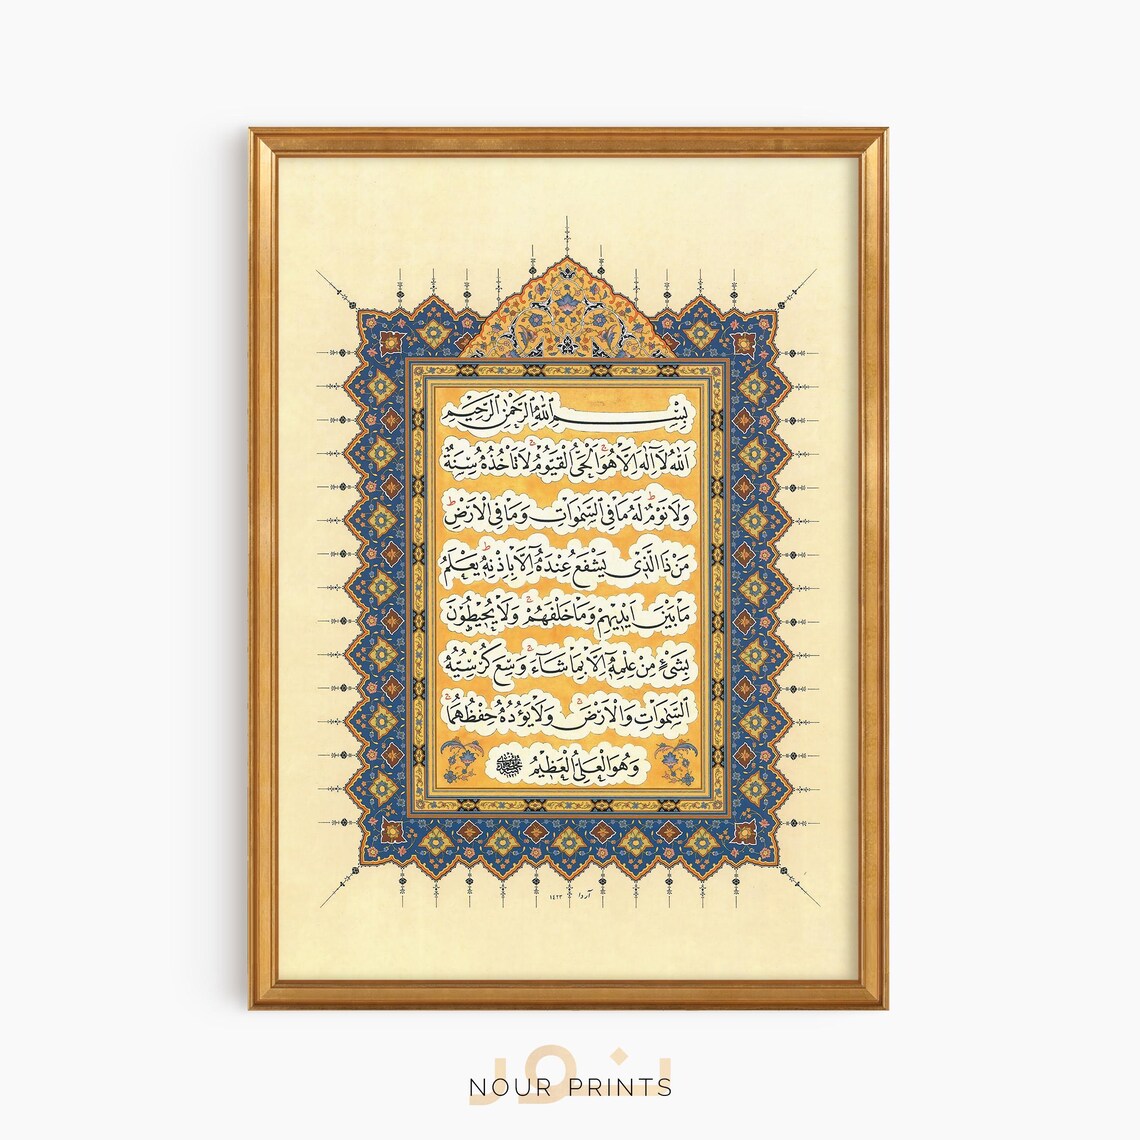 بِسْمِ اللهِ الرَّحْمٰنِ الرَّحِيمِ
اَللهُ لَا اِلٰهَ اِلَّا هُوَ الْحَيُّ الْقَيُّومُ لَا تَأْخُذُهُ سِنَةٌ
وَلَا نَوْمٌ لَهُ مَا فِي السَّمٰوَاتِ وَمَا فِي الْاَرْضِ
مَنْ ذَا الَّذِي يَشْفَعُ عِنْدَهُ اِلَّا بِاِذْنِهِ يَعْلَمُ
مَا بَيْنَ اَيْدِيهِمْ وَمَا خَلْفَهُمْ وَلَا يُحِيطُونَ
بِشَيْءٍ مِنْ عِلْمِهِ اِلَّا بِمَا شَاءَ وَسِعَ كُرْسِيُّهُ
السَّمٰوَاتِ وَالْاَرْضَ وَلَا يَؤُدُهُ حِفْظُهُمَا
وَهُوَ الْعَلِيُّ الْعَظِيمُ
آردا ١٤٢٣
نور
NOUR PRINTS